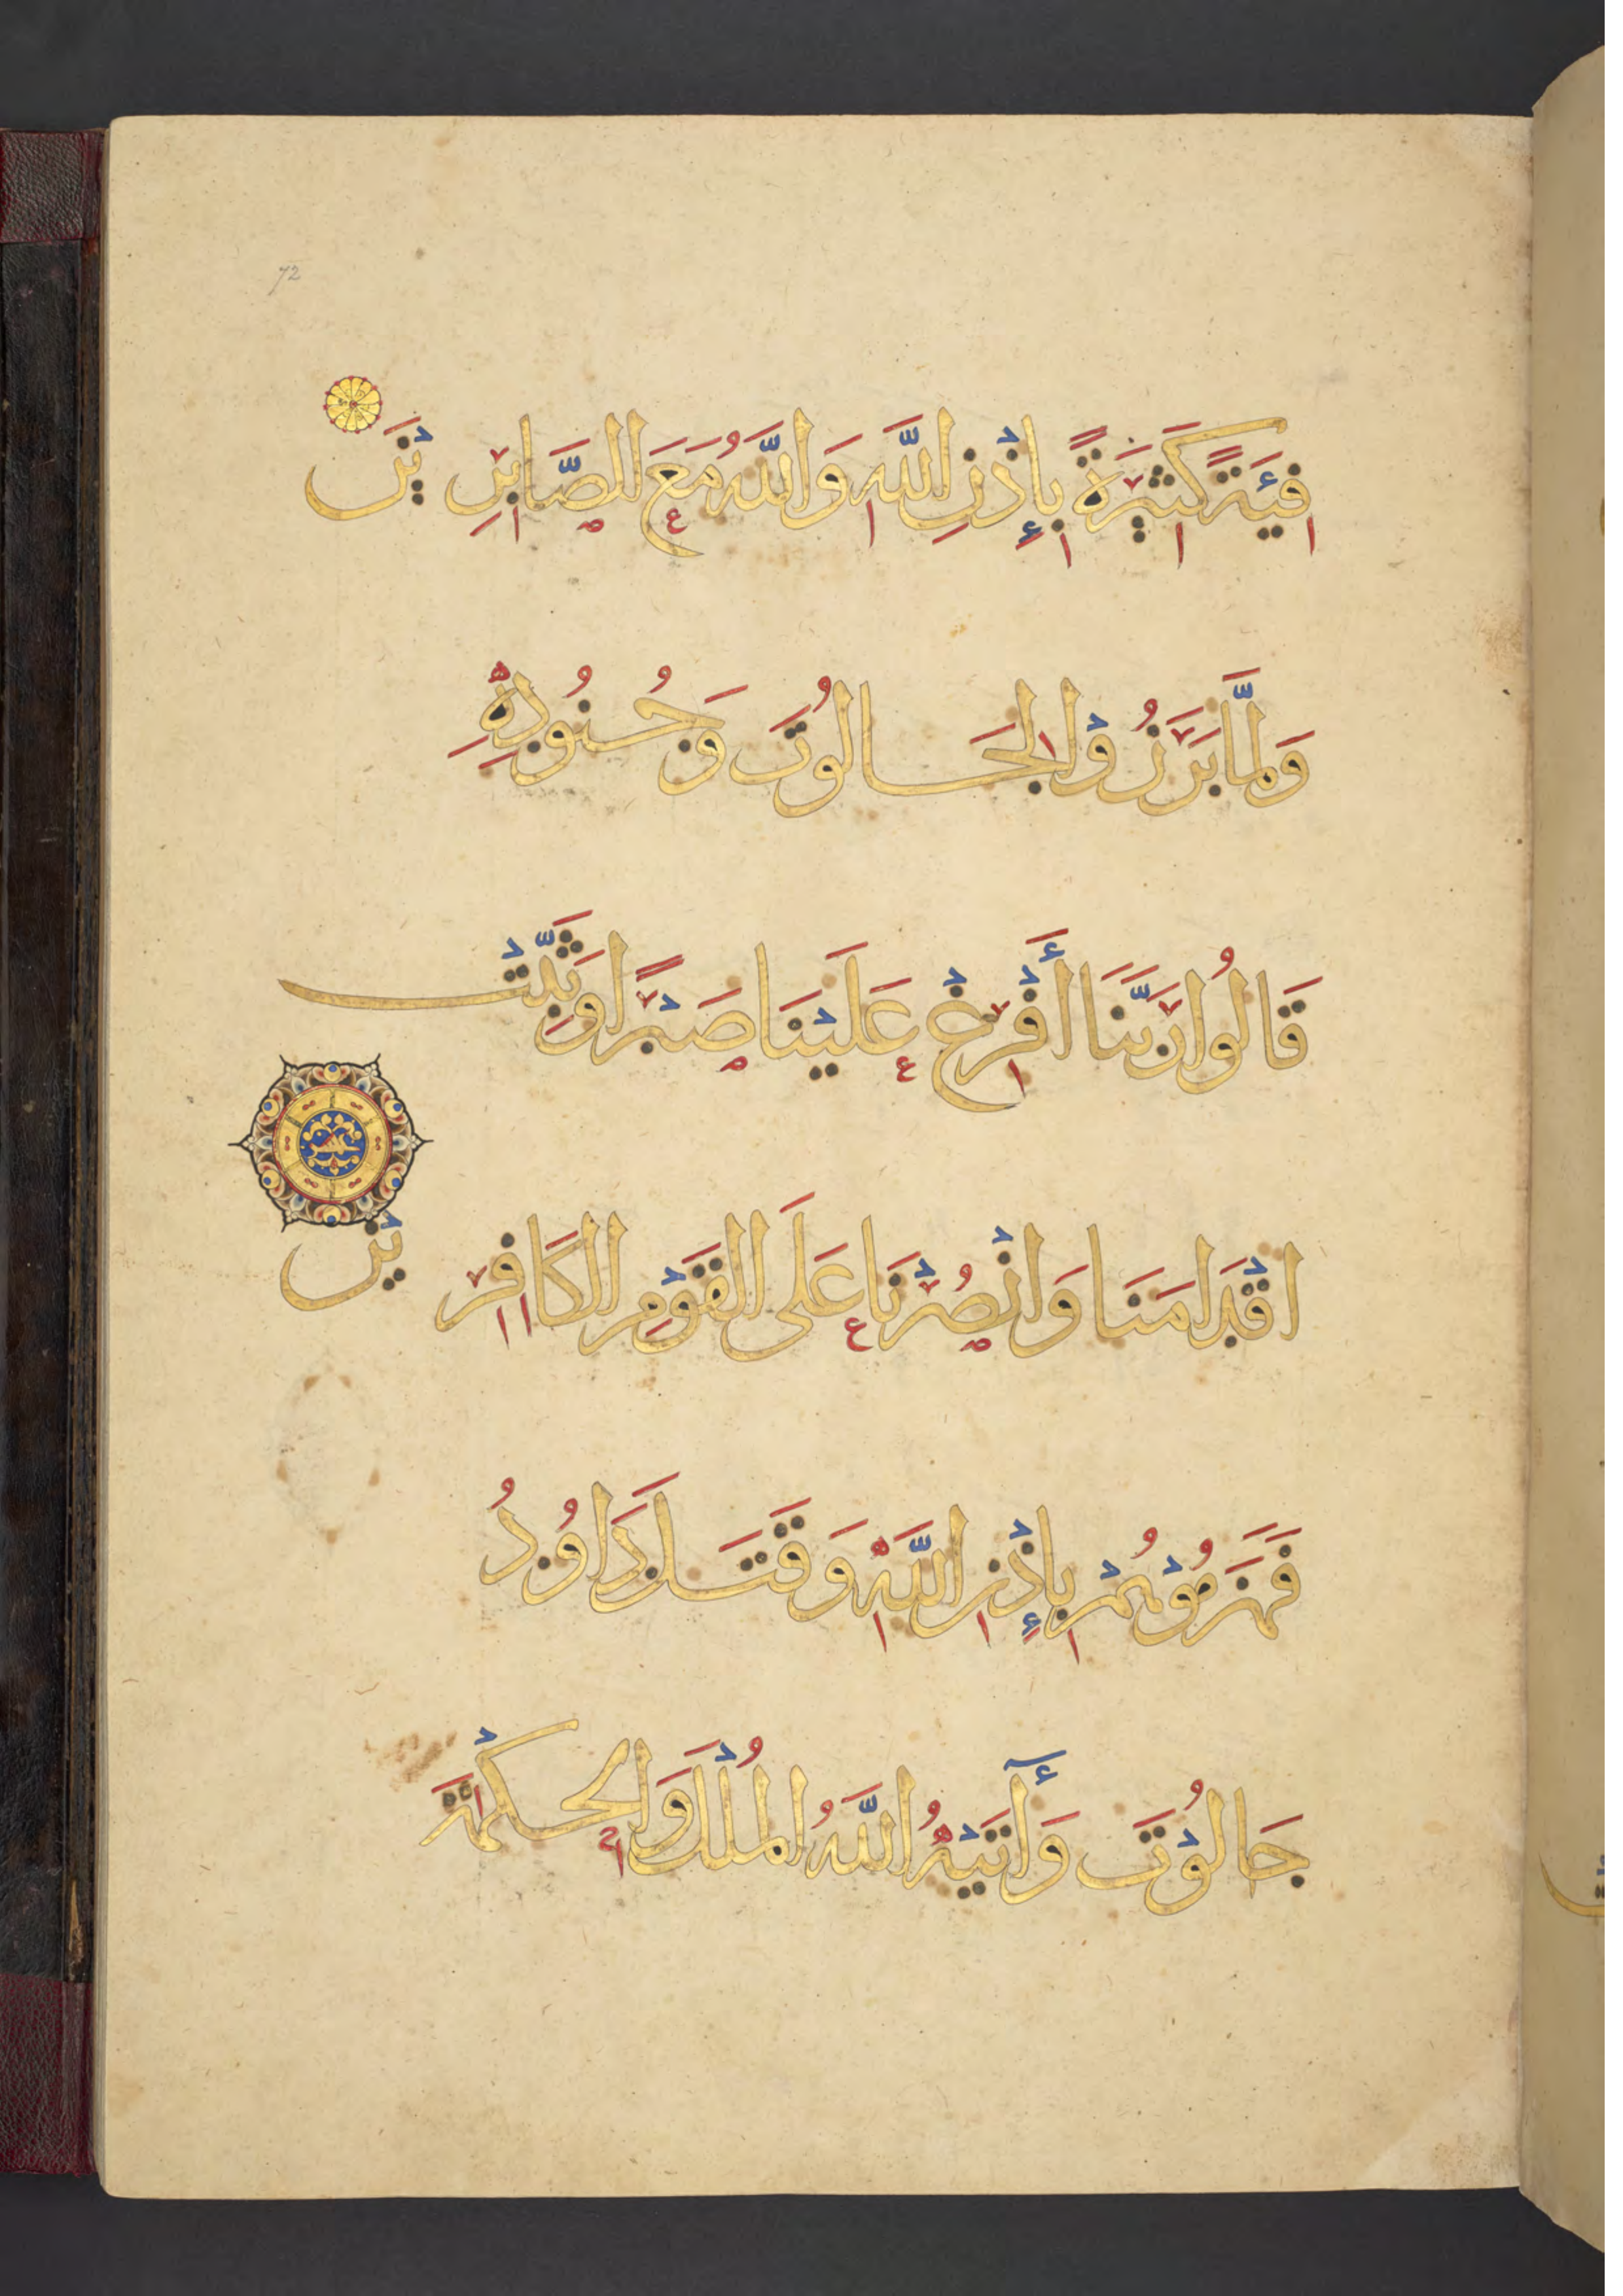 72
فِيَةً كَثِيرَةً بِإِذْنِ اللَّهِ وَاللَّهُ مَعَ الصَّابِرِيْنَ
وَلَمَّا بَرَزُوْا لِجَالُوتَ وَجُنُودِهِ
قَالُوا رَبَّنَا أَفْرِغْ عَلَيْنَا صَبْرًا وَثَبِّتْ
اقْدَامَنَا وَانْصُرْنَا عَلَى الْقَوْمِ الْكَافِرِيْنَ
فَهَزَمُوْهُمْ بِإِذْنِ اللَّهِ وَقَتَلَ دَاوُدُ
جَالُوْتَ وَآتَيْهُ اللَّهُ الْمُلْكَ وَالْحِكْمَةَ